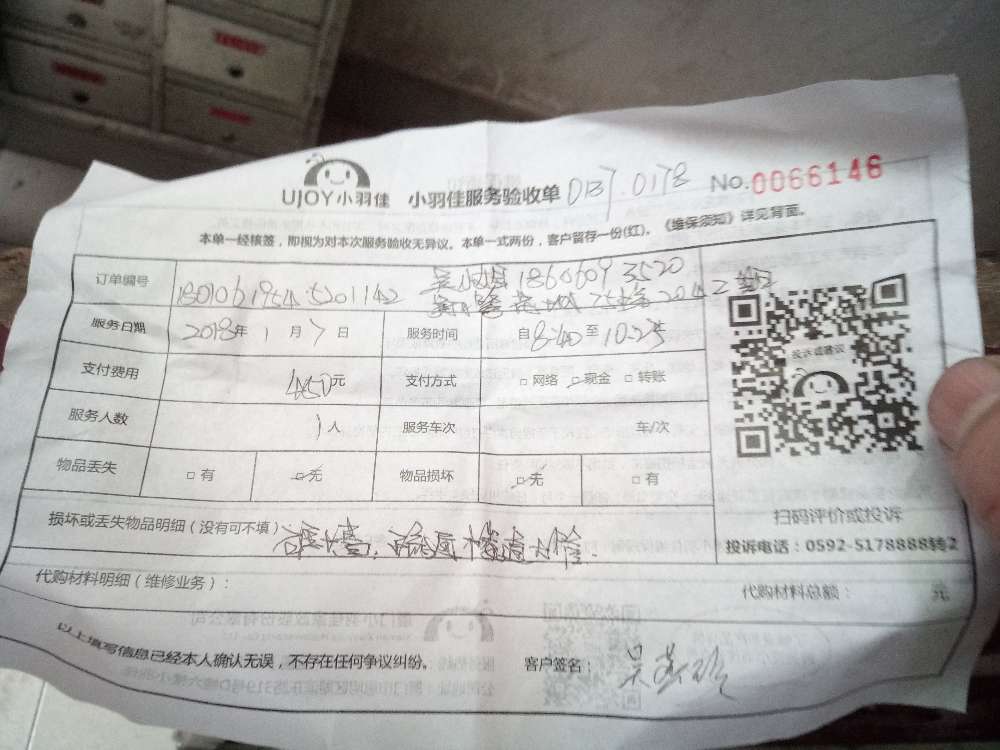 UJOY小羽佳 小羽佳服务验收单 0137.0178 No.0066146
本单一经核签，即视为对本次服务验收无异议。本单一式两份，客户留存一份(红)。《维保须知》详见背面。
订单编号 18606093520
服务日期 2018年 1月 7日 服务时间 自8:40至10:25
支付费用 450元 支付方式 □ 网络 □ 现金 □ 转账
服务人数 1人 服务车次 车/次
物品丢失 □ 有 □ 无 物品损坏 □ 无 □ 有
损坏或丢失物品明细（没有可不填）
代购材料明细（维修业务）： 代购材料总额： 元
以上填写信息已经本人确认无误，不存在任何争议纠纷。 客户签名：
投诉或建议
扫码评价或投诉
投诉电话：0592-5178888转2